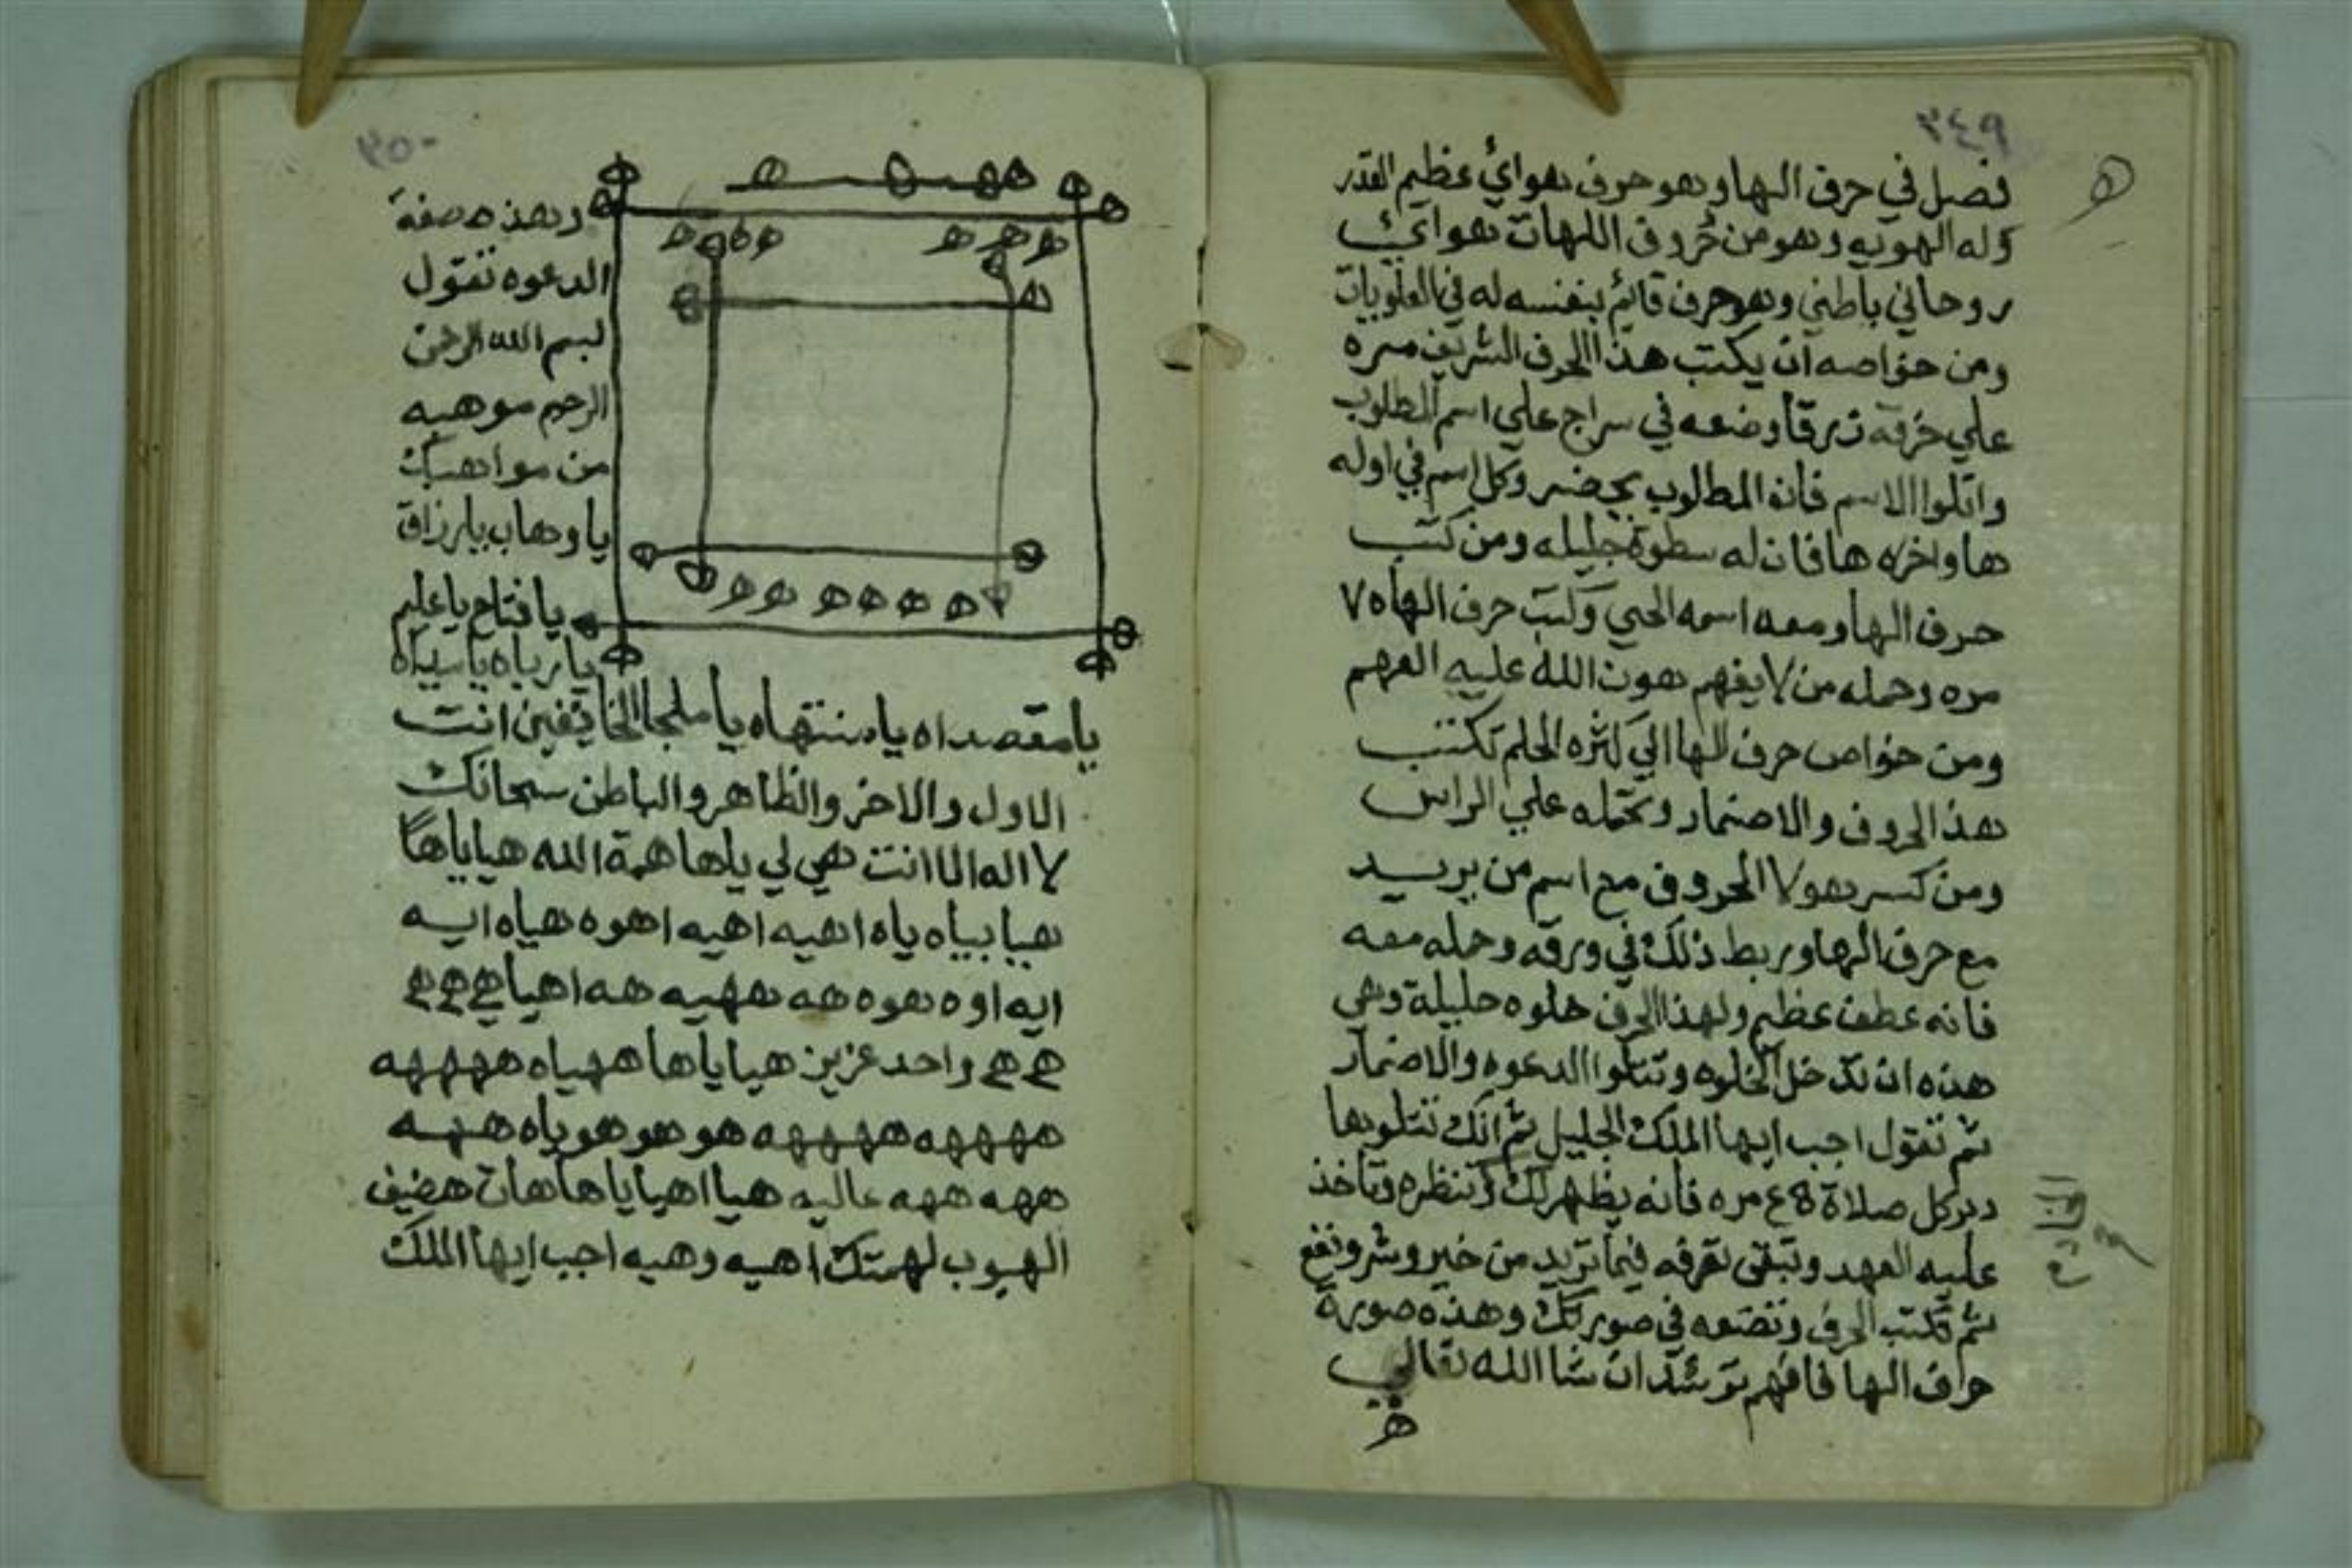 ٣٤٩
ه
فصل في حرف الها وهو حرف هوائي عظيم القدر
وله الهويه وهو من حروف اللهات هوائي
روحاني باطني وهو حرف قائم بنفسه له في العلويات
ومن خواصه ان يكتب هذا الحرف الشريف مره
علي خرقة زرقا وضعه في سراج علي اسم المطلوب
واتلوا الاسم فانه المطلوب يحضر وكل اسم في اوله
ها واخره ها فان له سطوة جليله ومن كتب
حرف الها ومعه اسمه الحي وكتب حرف الهاه ٧
مره وحمله من لا يفهم هون الله عليه الفهم
ومن خواص حرف الها الي كثره الحلم تكتب
هذا الحروف والاضمار وتحمله علي الراس
ومن كسر هولا الحروف مع اسم من يريد
مع حرف الها وربط ذلك في ورقه وحمله معه
فانه عطف عظيم ولهذا الحرف خلوه جليلة وهي
هذه ان تدخل الخلوه وتتلوا الدعوه والاضمار
ثم تقول اجب ايها الملك الجليل ثم انك تتلوها
دبر كل صلاة مره فانه يظهر لك وتنظره وتاخذ
عليه العهد وتبقى تعرفه فيما تريد من خير وشر ونفع
ثم تكتب الحرف وتضعه في وهذه صورة
حرف الها فافهم ترشد ان شا الله تعالي
ه
٣٥٠
ه ه ه ه
ه ه ه ه ه ه
ه ه ه ه ه ه
وهذه صفة
الدعوه تقول
لبسم الله الرحمن
الرحيم موهبه
من مواهبك
يا وهاب يا رزاق
يا فتاح يا عليم
يا رباه يا سيداه
يا مقصداه يا منتهاه يا ملجا الخايفين انت
الاول والاخر والظاهر والباطن سبحانك
لا اله الا انت هي لي يلها همة الله هيا ياها
هيا بياه ياه اهيه اهيه اهوه هياه ايه
ايه اوه هوه هه ههيه هه اهيا هي هي هي
هي هي واحد عزيز هيا ياها ههياه ههههه
ههههه ههههه هو هو هو ياه ههه
ههه ههه عاليه هيا اهيا ياها هات هضيف
الهبوب لهمتك اهيه وهيه اجب ايها الملك